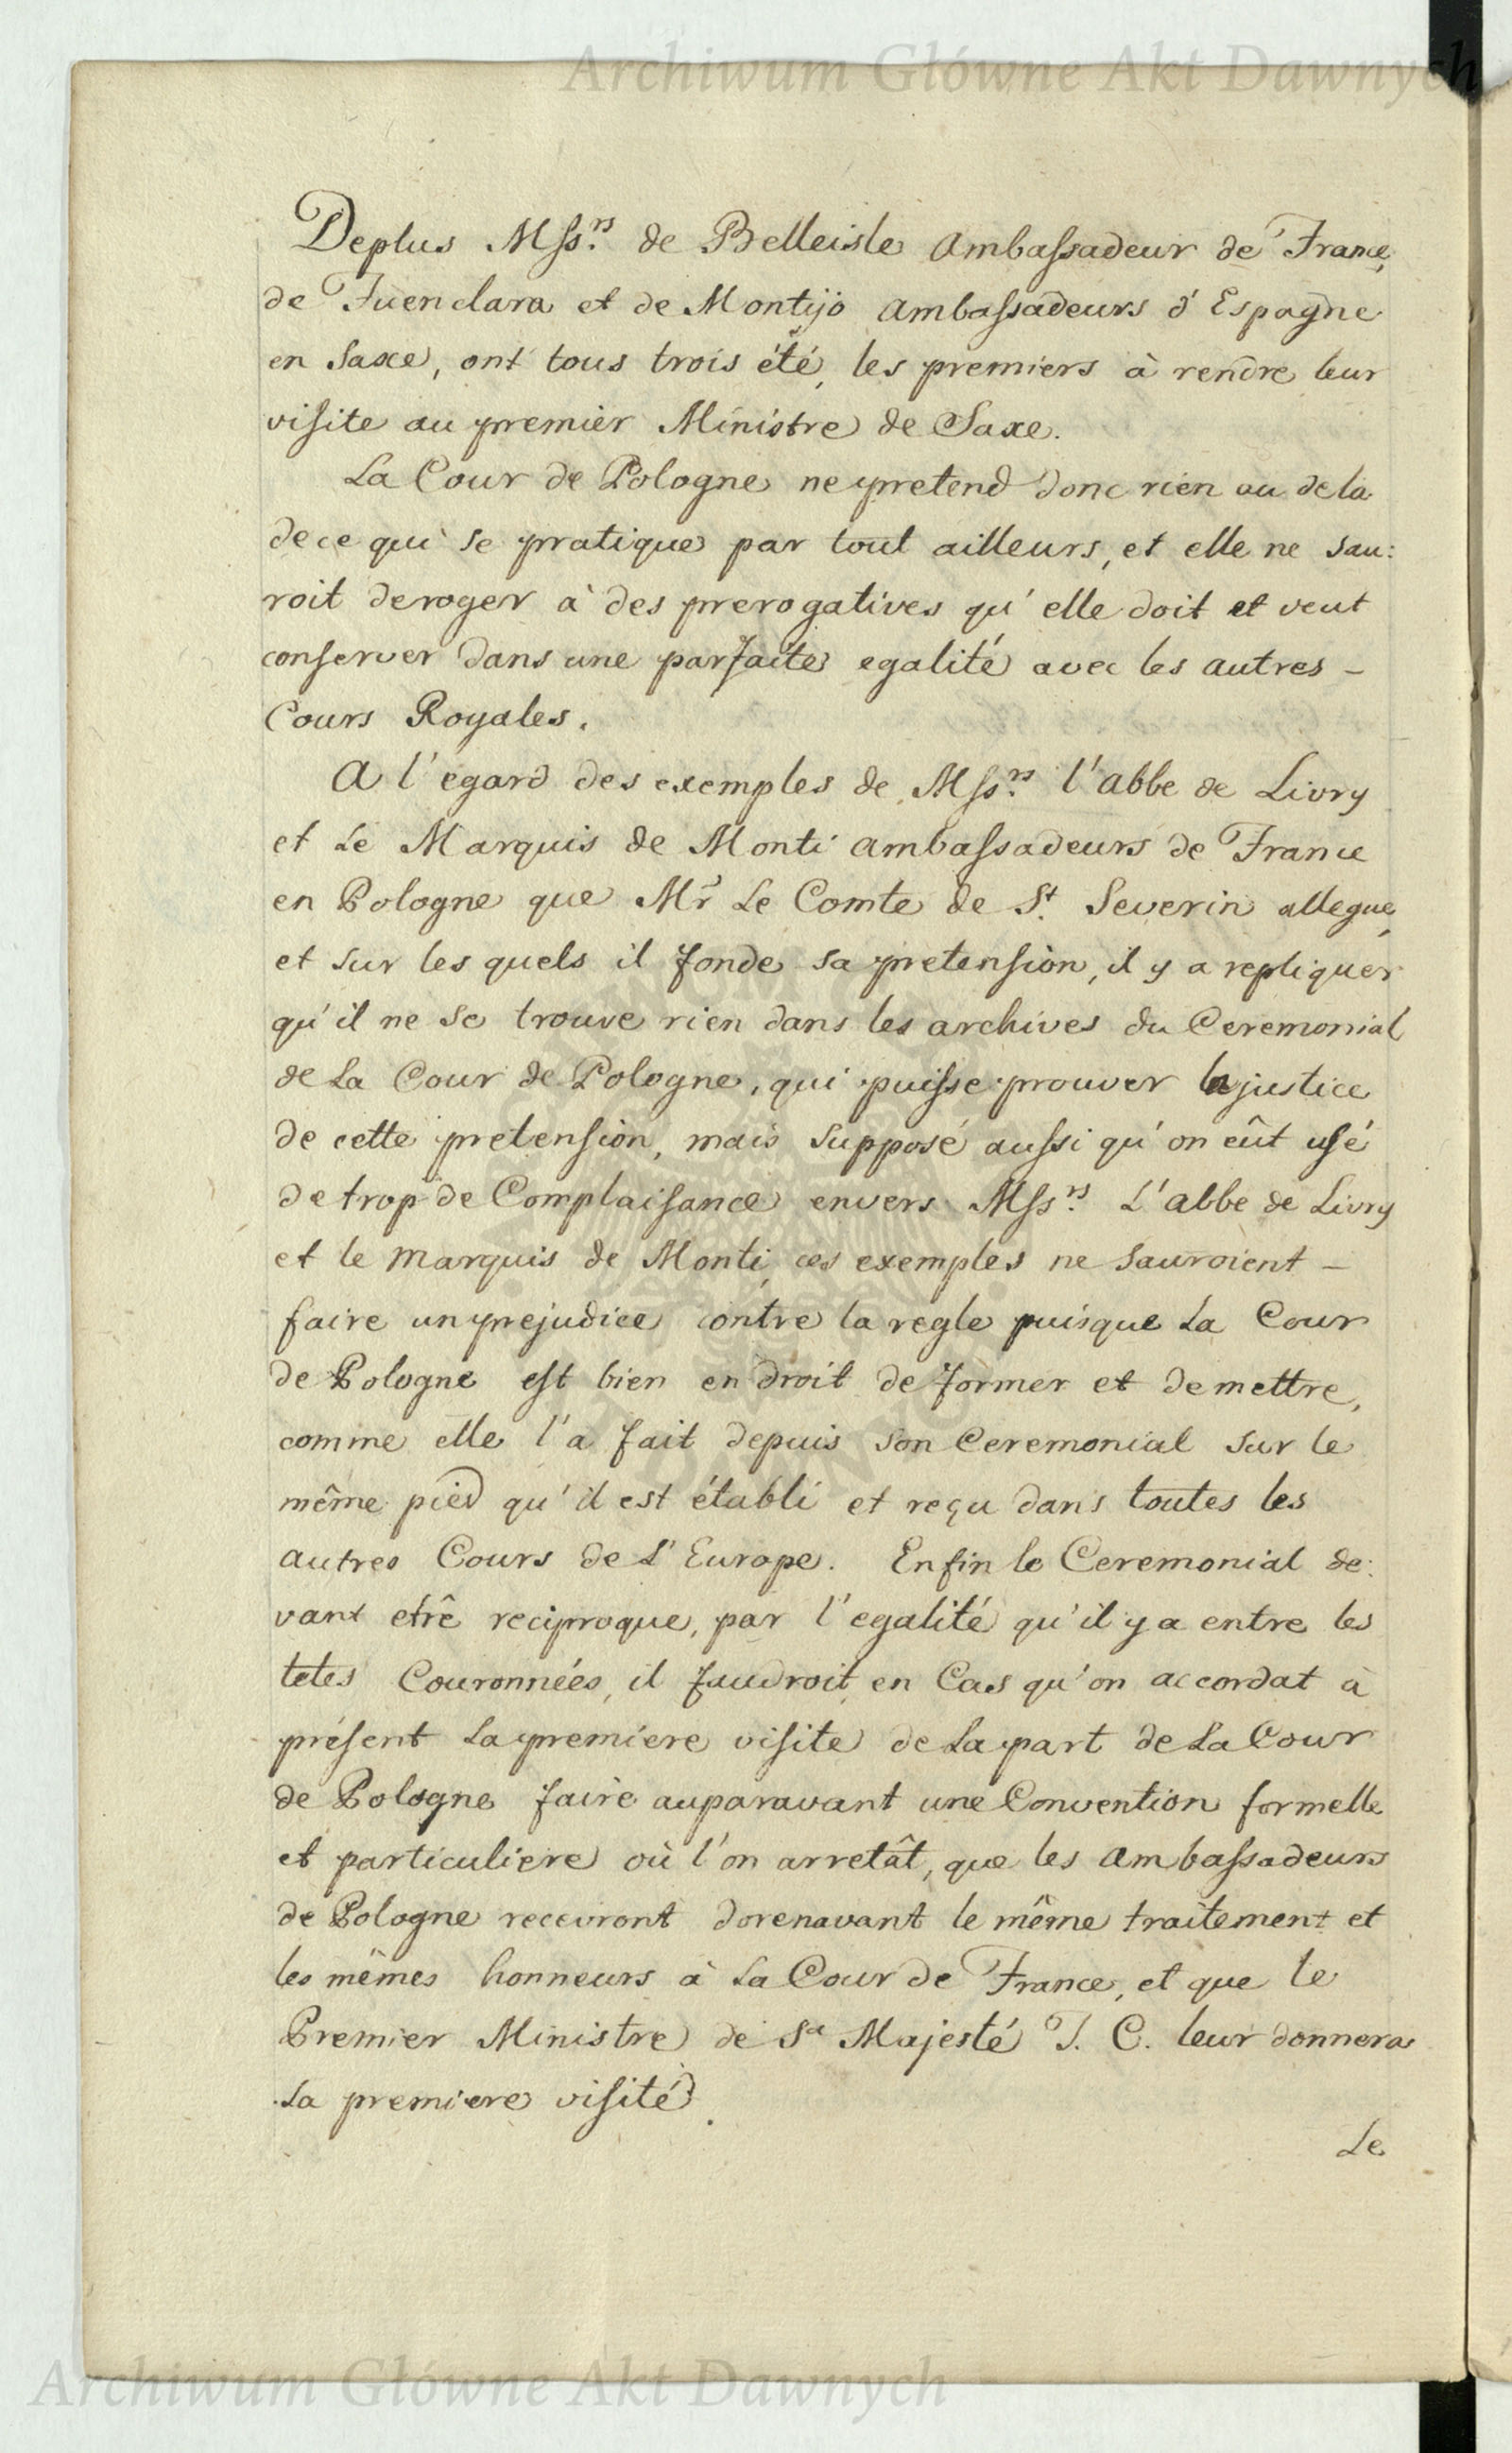 Archiwum Główne Akt Dawnych
Deplus Mssrs. de Belleisle Ambassadeur de France,
de Fuenclara et de Montijo Ambassadeurs d'Espagne
en Saxe, ont tous trois été, les premiers à rendre leur
visite au premier Ministre de Saxe.
La Cour de Pologne ne pretend donc rien au dela
de ce qui se pratique par tout ailleurs, et elle ne sau:
roit deroger à des prerogatives qu'elle doit et veut
conserver dans une parfaite egalité avec les autres –
Cours Royales.
A l'egard des exemples de Mssrs. l'abbe de Livry
et Le Marquis de Monti Ambassadeurs de France
en Pologne que Mr. Le Comte de St. Severin allegue,
et sur les quels il fonde sa pretension, il y a repliquer
qu'il ne se trouve rien dans les archives du Ceremonial
de La Cour de Pologne, qui puisse prouver la justice
de cette pretension, mais supposé aussi qu'on eût usé
de trop de Complaisance envers Mssrs. L'abbe de Livry
et le Marquis de Monti, ces exemples ne sauroient –
faire un prejudice contre la regle puisque La Cour
de Pologne est bien en droit de former et de mettre,
comme elle l'a fait depuis son Ceremonial sur le
même pied qu'il est établi et reçu dans toutes les
autres Cours de L'Europe. Enfin le Ceremonial de:
vant etrê reciproque, par l'egalité qu'il y a entre les
tetes Couronnées, il faudroit en Cas qu'on accordat à
présent La premiere visite de La part de La Cour
de Pologne faire auparavant une Convention formelle
et particuliere où l'on arretât, que les Ambassadeurs
de Pologne recevront dorenavant le même traitement et
les mêmes honneurs à La Cour de France, et que le
Premier Ministre de Sa Majesté T. C. leur donnera
La premiere visité.
Le
Archiwum Główne Akt Dawnych